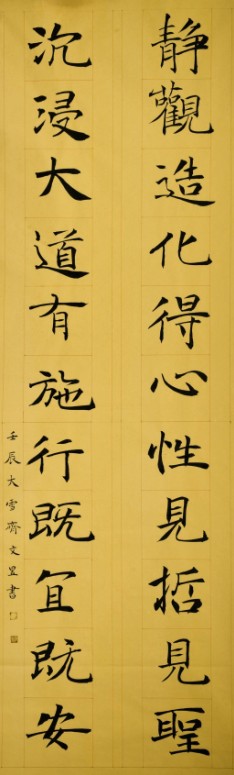 靜觀造化得心性見哲見聖
沉浸大道有施行既宜既安
壬辰大雪齊文昱書